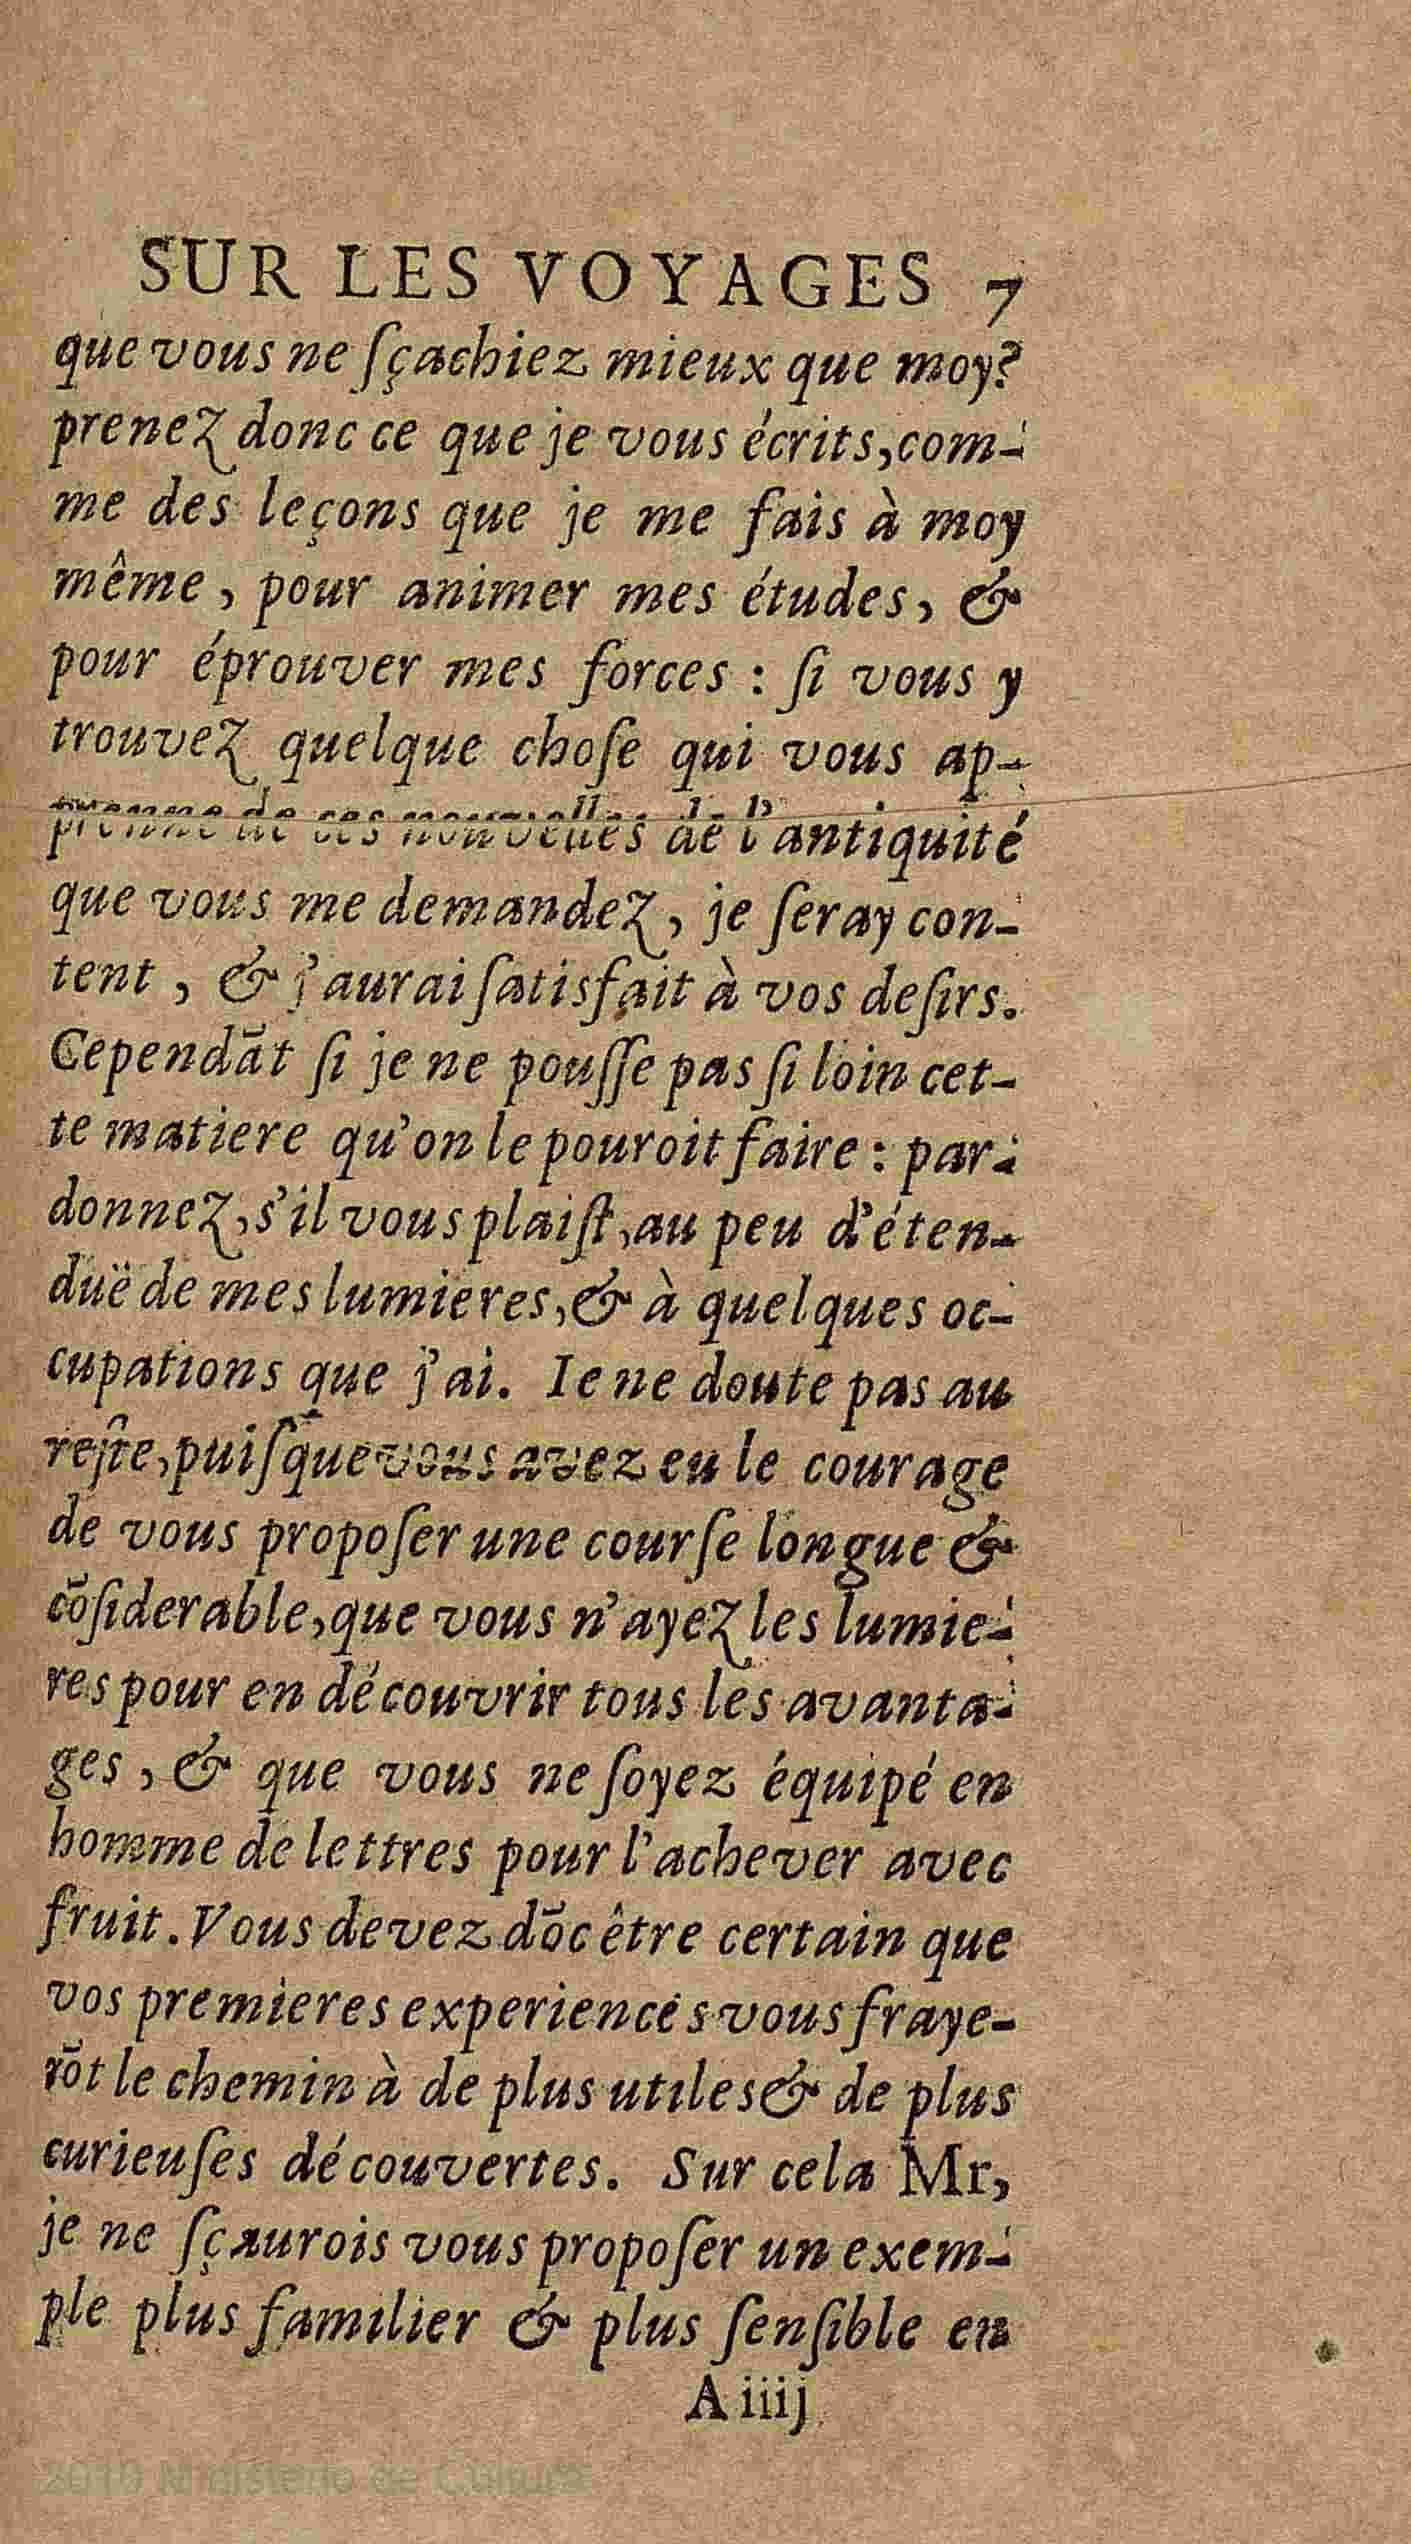 SUR LES VOYAGES 7
que vous ne ſçachiez mieux que moy?
prenez donc ce que je vous écrits, com-
me des leçons que je me fais à moy
même, pour animer mes études, &
pour éprouver mes forces : ſi vous y
trouvez quelque choſe qui vous ap-
prenne de ces nouvelles de l'antiquité
que vous me demandez, je ſeray con-
tent, & j'aurai ſatisfait à vos deſirs.
Cependãt ſi je ne pouſſe pas ſi loin cet-
te matiere qu'on le pouroit faire : par-
donnez, s'il vous plaiſt, au peu d'éten-
duë de mes lumieres, & à quelques oc-
cupations que j'ai. Ie ne doute pas au
reſte, puiſque vous avez eu le courage
de vous propoſer une courſe longue &
cõſiderable, que vous n'ayez les lumie-
res pour en découvrir tous les avanta-
ges, & que vous ne ſoyez équipé en
homme de lettres pour l'achever avec
fruit. Vous devez dõc être certain que
vos premieres experiences vous fraye-
rõt le chemin à de plus utiles & de plus
curieuſes découvertes. Sur cela Mr,
je ne ſçaurois vous propoſer un exem-
ple plus familier & plus ſenſible en
A iiij
2010 Ministerio de Cultura